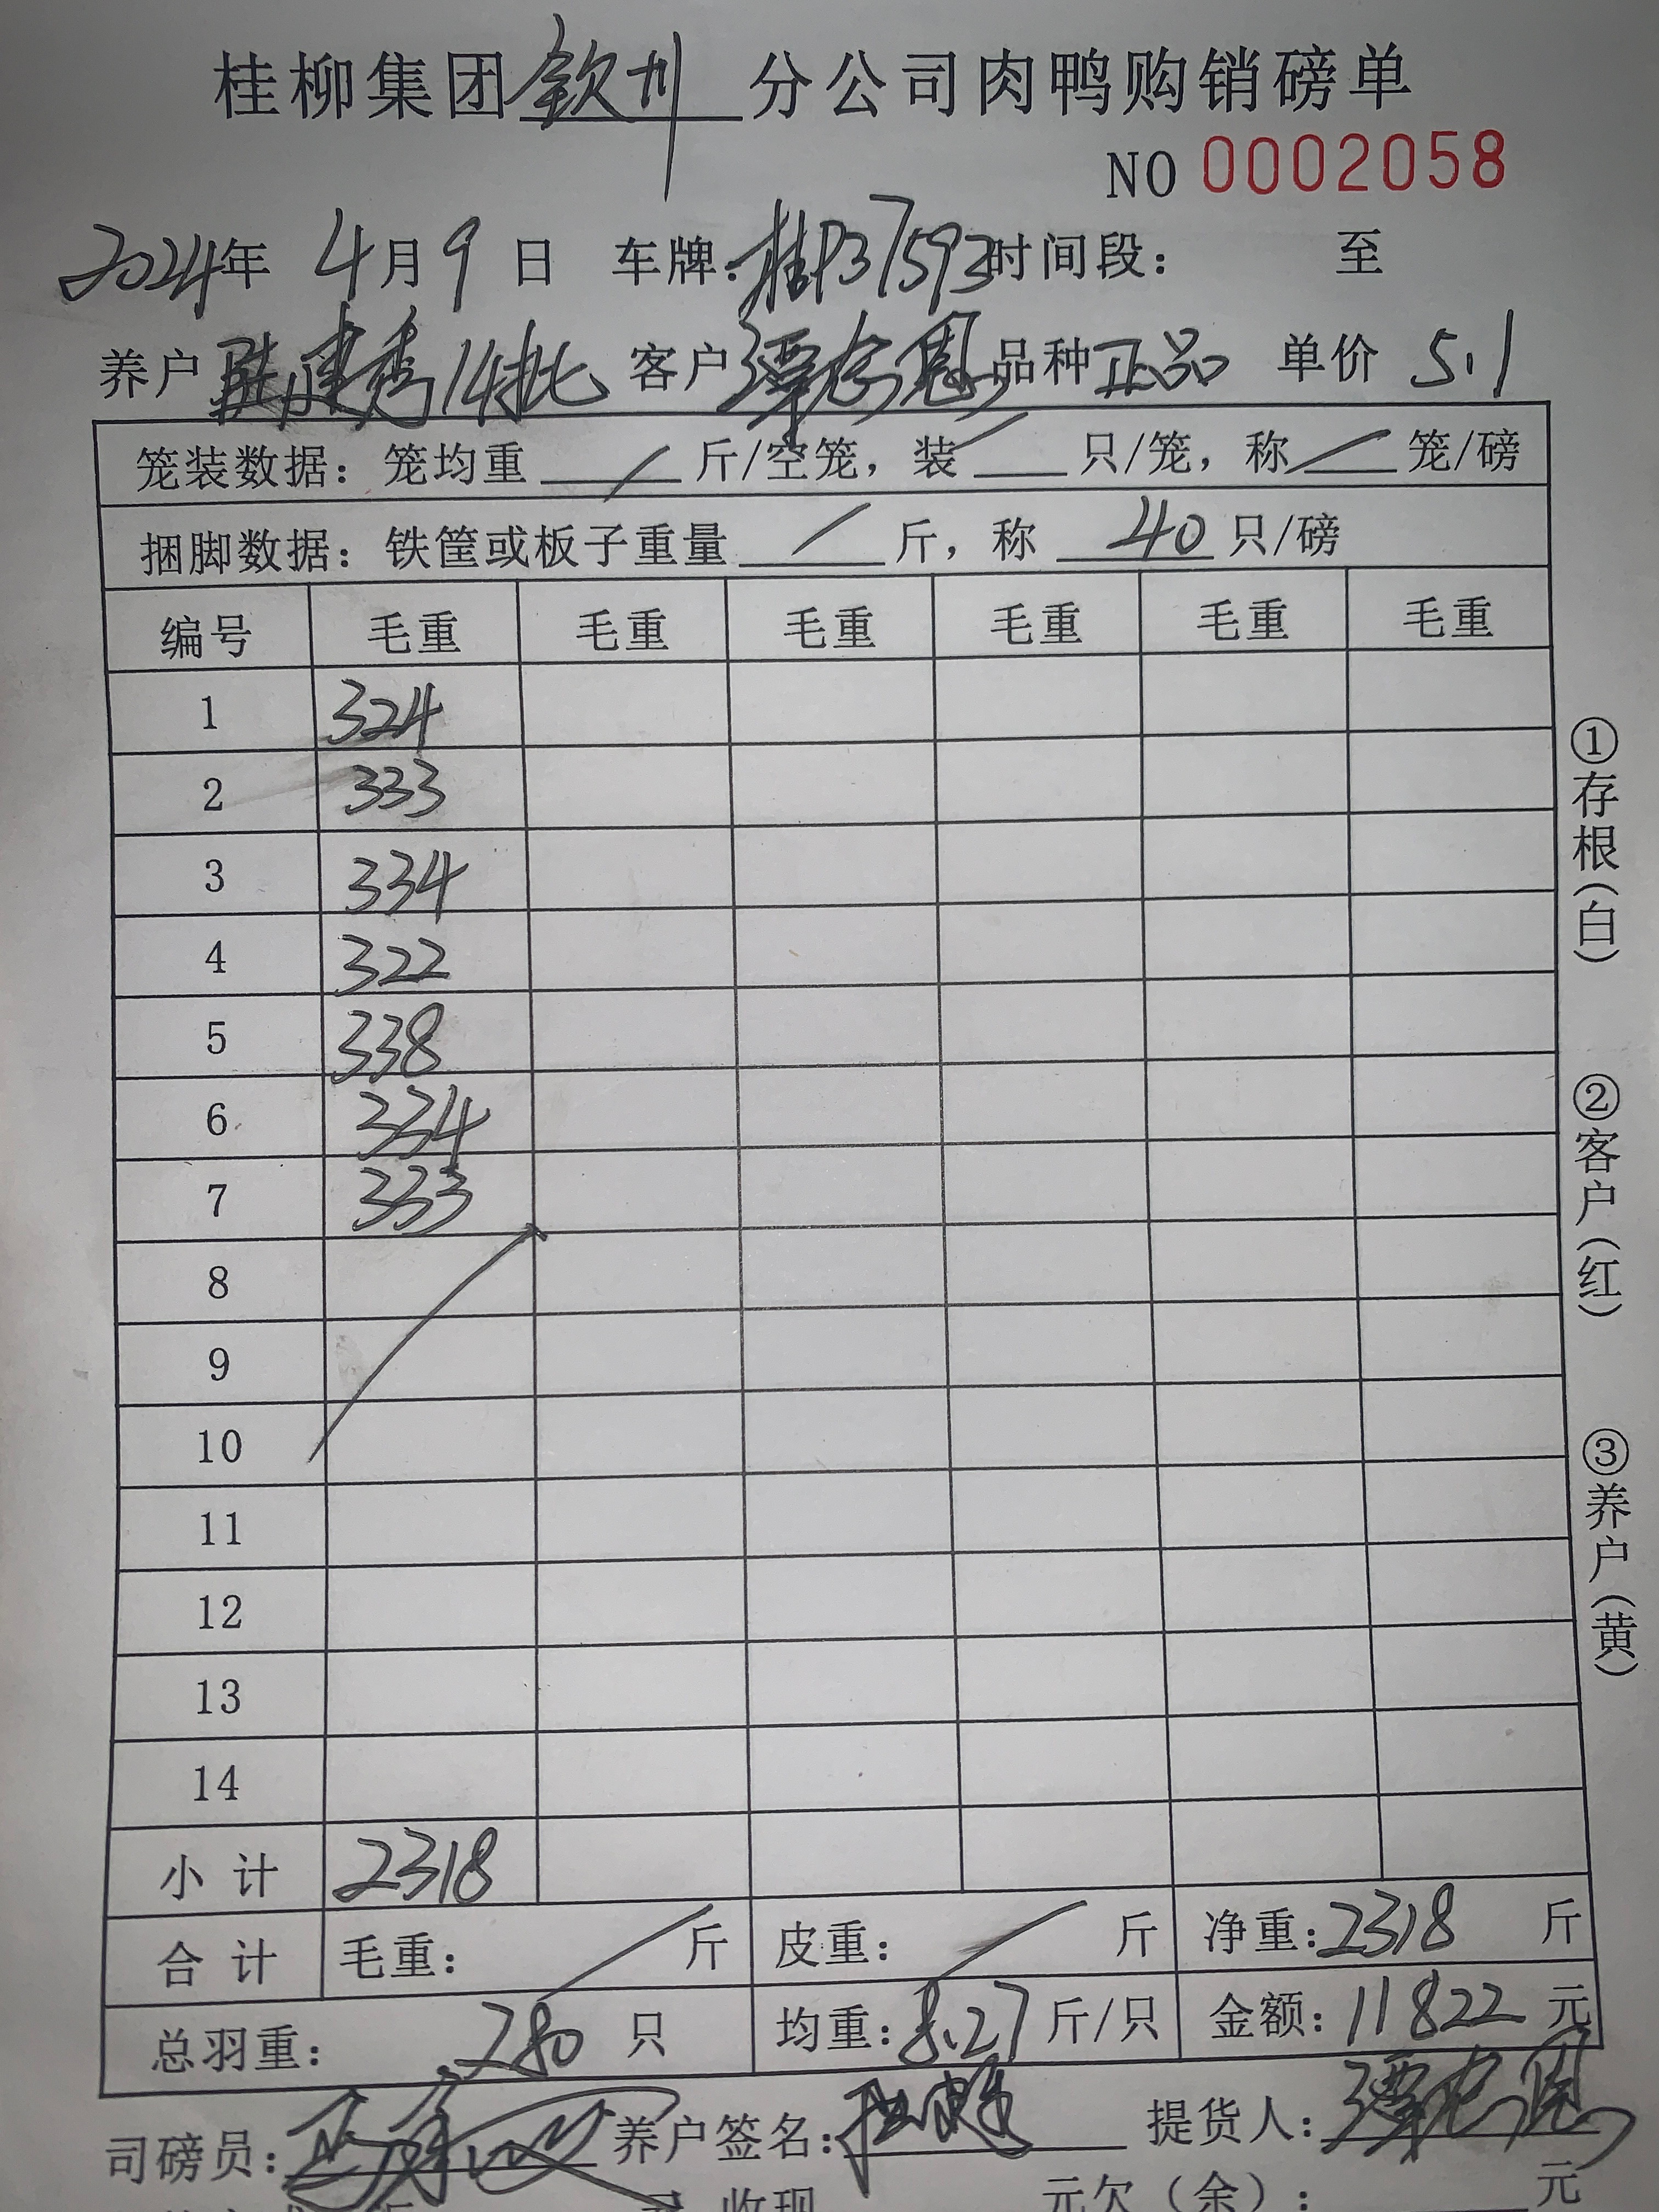 桂柳集团 钦州 分公司肉鸭购销磅单
NO 0002058
2024年 4月 9日 车牌: 桂P37593 时间段: 至
养户 建秀14批 客户 覃 恩 品种 正品 单价 5.1
笼装数据: 笼均重 / 斤/空笼, 装 / 只/笼, 称 / 笼/磅
捆脚数据: 铁筐或板子重量 / 斤, 称 40 只/磅
编号 毛重 毛重 毛重 毛重 毛重 毛重
1 324
2 333
3 334
4 322
5 338
6 334
7 333
8
9
10
11
12
13
14
小计 2318
合计 毛重: / 斤 皮重: / 斤 净重: 2318 斤
总羽重: 280 只 均重: 8.27 斤/只 金额: 11822 元
司磅员: 养户签名: 提货人: 覃 恩
收现 元欠(余): 元
①存根(白)
②客户(红)
③养户(黄)